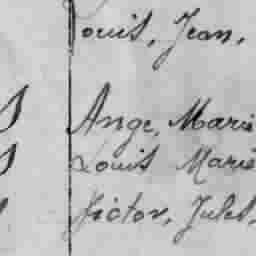 Louis, Jean.
Ange, Marie
Louis Marie
Victor, Jules,